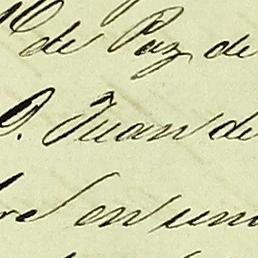 de Paz de
D. Juan de
en un